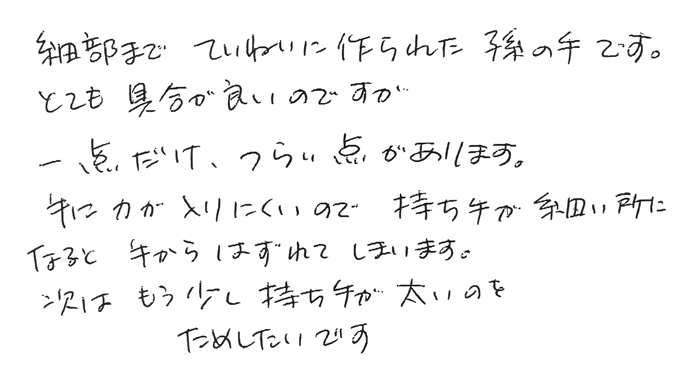 細部まで ていねいに作られた 孫の手です。
とても 具合が良いのですが
一点だけ、つらい点があります。
手に力が入りにくいので 持ち手が細い所に
なると 手からはずれてしまいます。
次は もう少し持ち手が太いのを
ためしたいです